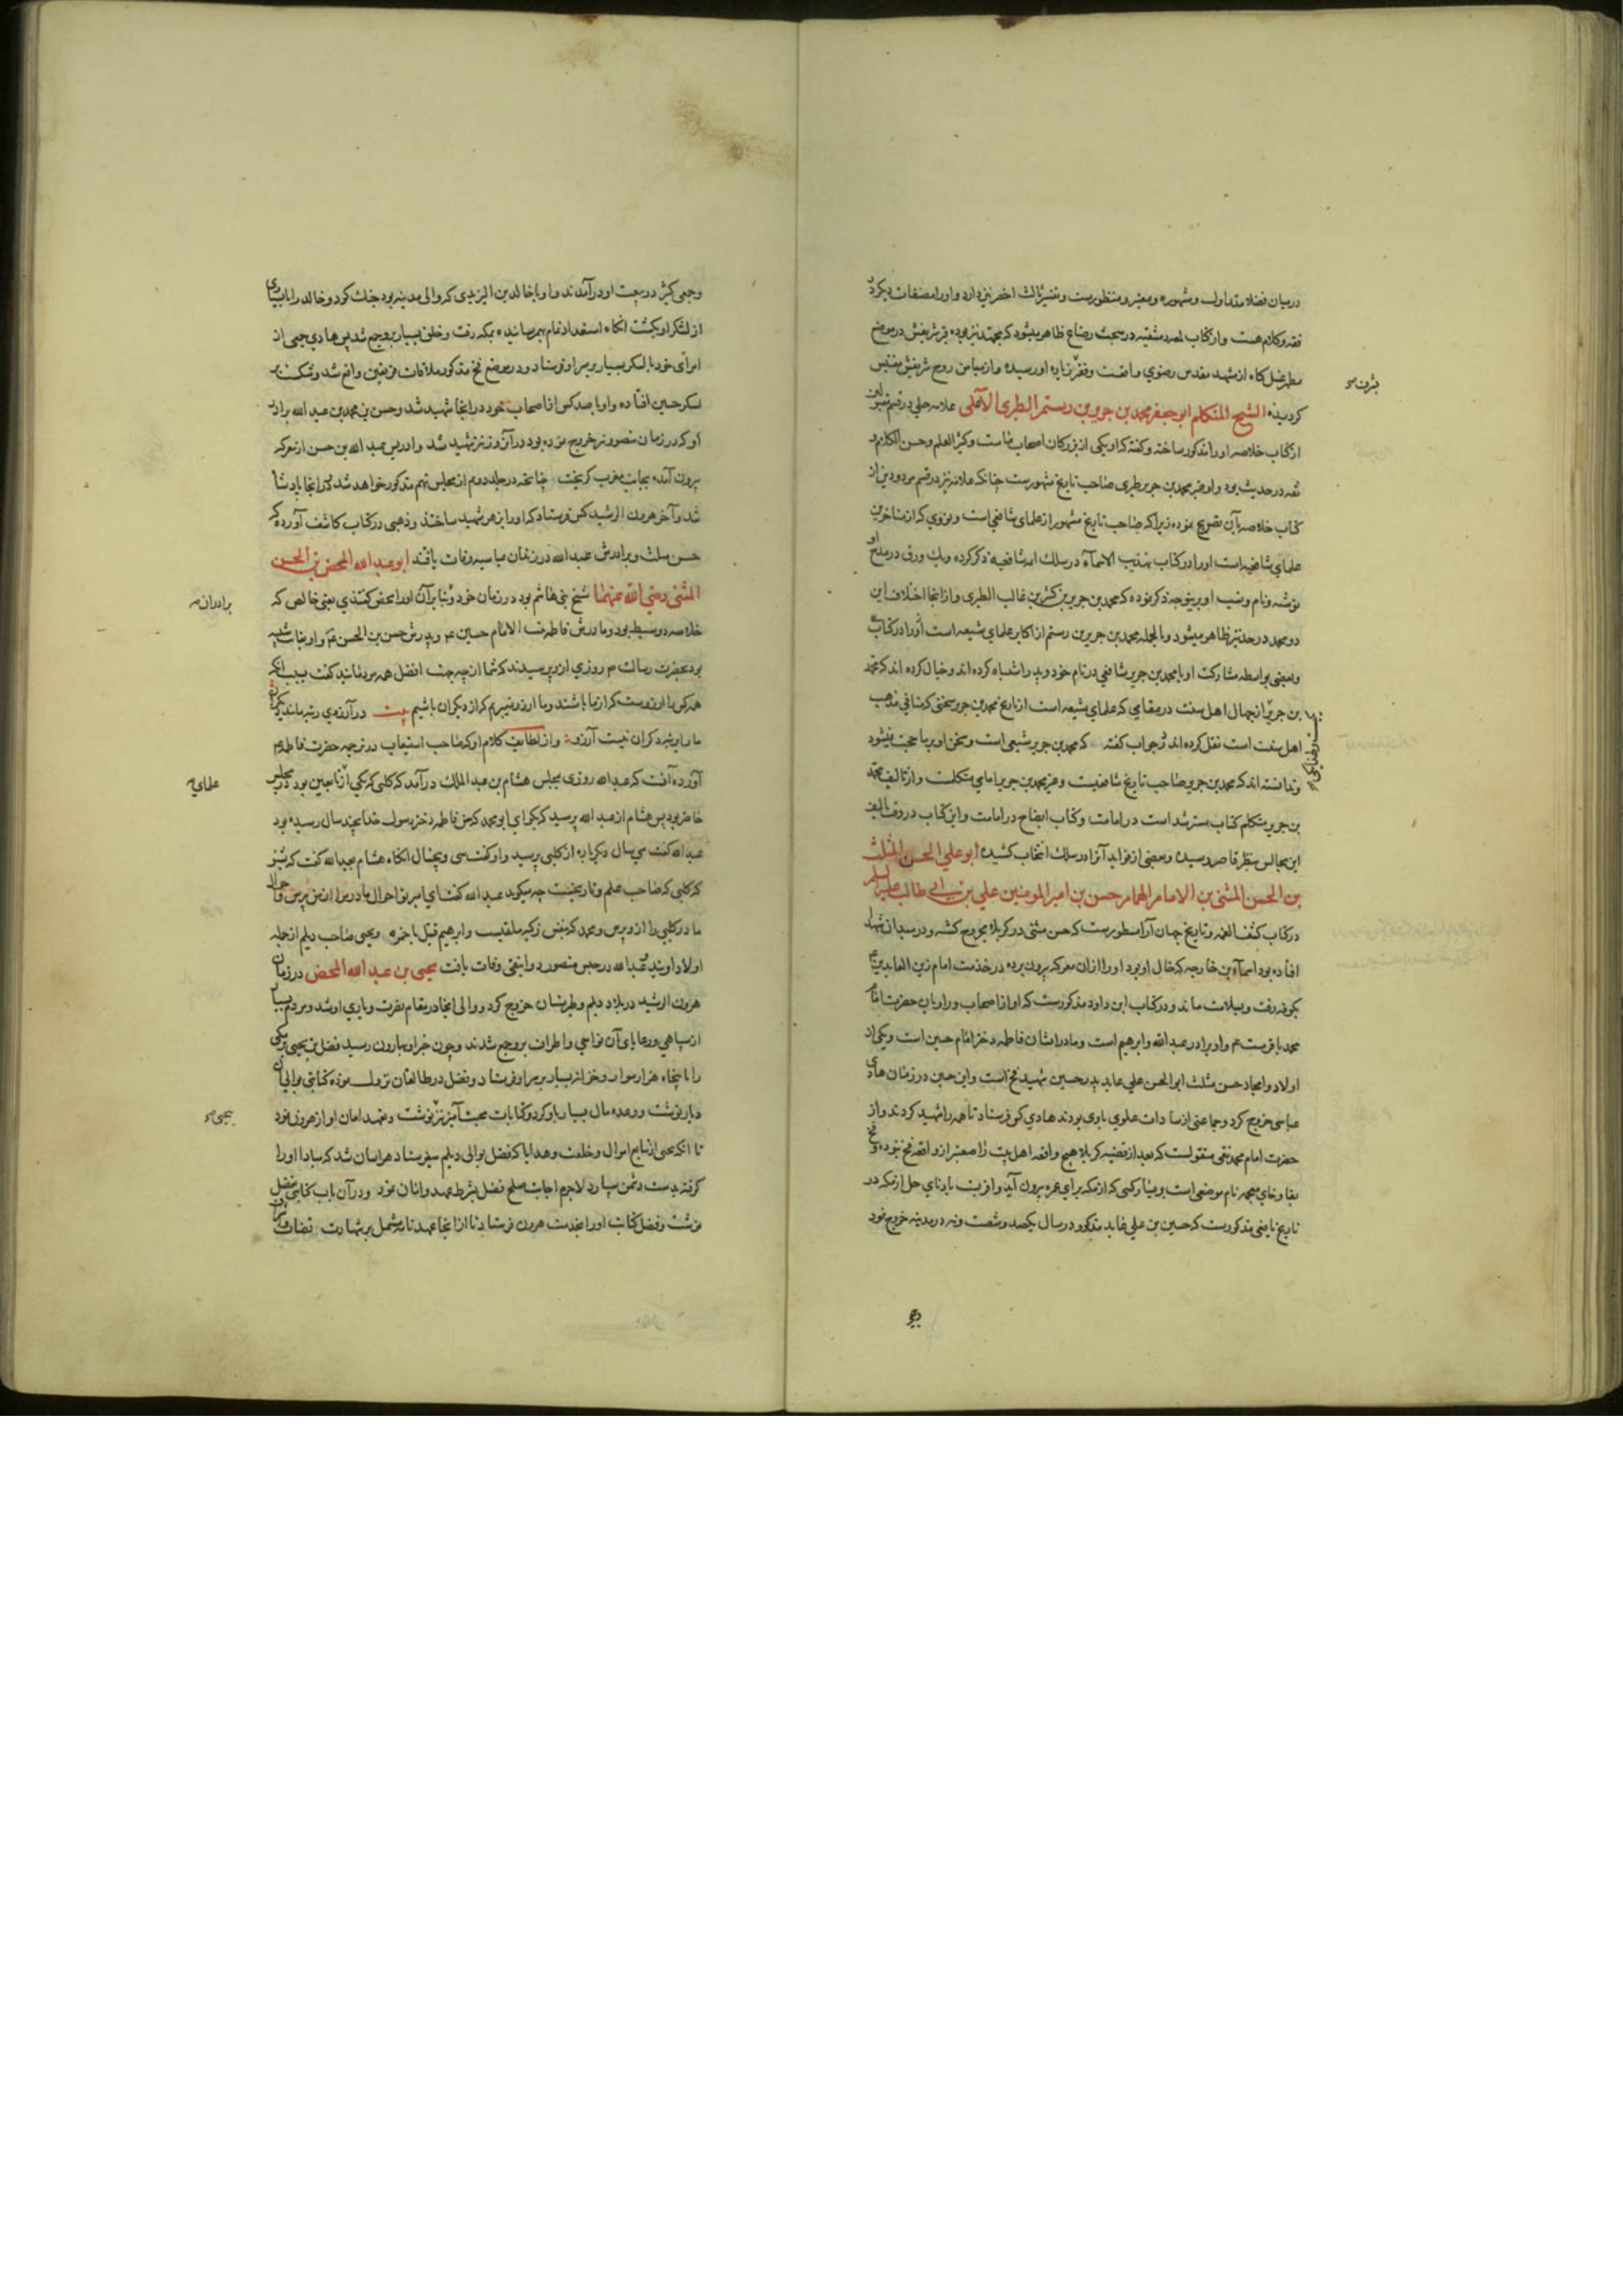 درمیان فضلا متداول و مشهوره و معتبر و منظورست و تفسیر ثالث اخصر نیز دارد و او را مصنفات دیگر در
فقه و کلام هست و از کتاب لمعه دمشقیه در مبحث رضاع ظاهر میشود که مجتهد نیز بوده قبر شریفش در موضع
مطهر غسل کاه از مشهد مقدس رضوی واقعست و فقیر بزیارت او رسیده و از میامن روح شریفش مقتبس
کردیده الشیخ المتکلم ابو جعفر محمد بن جریر بن رستم الطبری الآملی علامه حلی در قسم مقبولین
از کتاب خلاصه او را مذکور ساخته و کفته که او یکی از بزرکان اصحاب ماست و کثیر العلم و حسن الکلام و
ثقه در حدیث بود و او غیر محمد بن جریر طبری صاحب تاریخ مشهورست چنانکه علامه نیز در قسم مردودین از
کتاب خلاصه بآن تصریح نموده زیرا که صاحب تاریخ مشهور از علمای شافعی است و نووی که از متاخرین
علمای شافعیه است او را در کتاب تهذیب الاسماء در سلک ائمه شافعیه ذکر کرده و یک ورق در مدح او
نوشته و نام و نسب او برینوجه ذکر نموده که محمد بن جریر بن کثیر بن غالب الطبری و از اینجا اختلاف این
دو محمد در جد نیز ظاهر میشود و بالجمله محمد بن جریر بن رستم از اکابر علمای شیعه است او را در کتاب
و بعضی بواسطه مشارکت او با محمد بن جریر شافعی در نام خود و پدر اشتباه کرده اند و خیال کرده اند که محمد
بن جریر از جهال اهل سنت در مقامی که علمای شیعه است از تاریخ محمد بن جریر سخنی که منافی مذهب
اهل سنت است نقل کرده اند در جواب کفته که محمد بن جریر شیعی است و سخن او بر ما حجت نمیشود
و ندانسته اند که محمد بن جریر صاحب تاریخ شافعیست و غیر محمد بن جریر امامی متکلمست و از تالیف محمد
بن جریر متکلم کتاب مسترشد است در امامت و کتاب ایضاح در امامت و این کتاب در وقت تالیف
این مجالس بنظر قاصر رسیده و بعضی از فواید آنرا در سلک انتخاب کشیده ابو علی الحسن المثلث
بن الحسن المثنی بن الامام الهمام حسن بن امیر المومنین علی بن ابی طالب علیه السلم
در کتاب کشف الغمه و تاریخ جهان آرا مسطورست که حسن مثنی در کربلا مجروح کشته و در میدان شهدا
افتاده بود اسماء بن خارجه که خال او بود او را از ان معرکه بیرون برده در خدمت امام زین العابدین ع
بکوفه رفت و بسلامت ماند و در کتاب ابن داود مذکورست که او از اصحاب و راویان حضرت امام
محمد باقرست ع و او برادر عبد الله و ابرهیم است و مادر ایشان فاطمه دختر امام حسین است و یکی از
اولاد و امجاد حسن مثلث ابو الحسن علی عابد پدر حسین شهید فخ است و این حسین در زمان هادی
عباسی خروج کرد و جماعتی از سادات علوی با وی بودند هادی کس فرستاد تا همه را شهید کردند و از
حضرت امام محمد تقی منقولست که بعد از قضیه کربلا هیچ واقعه اهل بیت را صعبتر از واقعه فخ نبوده و فخ
بفا و خای معجمه نام موضعی است بر یسار کسی که از مکه برای عمره بیرون آید و از
تاریخ یافعی مذکورست که حسین بن علی عابد مذکور در سال یکصد و شصت و نه در مدینه خروج نمود
شرف
و جمعی
و جمعی کثیر در بیعت او درآمدند و او با خالد بن الیزیدی که والی مدینه بود جنک کرد و خالد را با بسیاری
از لشکر او بکشت انکاه استعداد تمام بهم رسانیده بمکه رفت و خلق بسیار برو جمع شد پس هادی جمعی از
امرای خود با لشکر بسیار بر سر او فرستاد و در موضع فخ مذکور ملاقات فریقین واقع شد و شکست بر
لشکر حسین افتاده و او با صد کس از اصحاب خود در اینجا شهید شد و حسن بن محمد بن عبد الله برادر
او که در زمان منصور نیز خروج نموده بود در آنروز نیز شهید شد و ادریس عبد الله بن حسن از معرکه
بیرون آمده بجانب مغرب کریخت چنانچه در جلد دوم از مجلس نهم مذکور خواهد شد که در اینجا پادشا
شد و آخر هرون الرشید کس فرستاد که او را بزهر شهید ساختند و ذهبی در کتاب کاشف آورده که
حسن مثلث و برادرش عبد الله در زندان عباسیه وفات یافتند ابو عبد الله المحض بن الحسن
المثنی رضی الله عنهما شیخ بنی هاشم بود در زمان خود و بنابرآن او را محض کفتندی یعنی خالص که
خلاصه دو سبط بود و مادرش فاطمه بنت الامام حسین ع م و پدرش حسن بن الحسن ع م و او بغایت شبیه
بود بحضرت رسالت ص م روزی ازو پرسیدند که شما از چه جهت افضل همه مردمانید کفت بسبب انکه
همه کس را ارزوست که از ما باشند و ما ارزو نمیبریم که از دیکران باشیم بیت در آرزوی رتبه مانند یکمان
ما را برتبه دکران نیست آرزو و از لطایف کلام او که صاحب استیعاب در ترجمه حضرت فاطمه ع م
آورده آنست که عبد الله روزی بمجلس هشام بن عبد الملک درآمد که کلبی که یکی از تابعین بود در مجلس
حاضر بود پس هشام از عبد الله پرسید که بکو ای ابو محمد که سن فاطمه دختر رسول خدا بچند سال رسیده بود
عبد الله کفت سی سال دیکرباره از کلبی پرسید و او کفت سی و پنجسال انکاه هشام بعبد الله کفت که شنو
که کلبی که صاحب علم و تاریخست چه میکوید عبد الله کفت ای امیر تو احوال مادر مرا از من پرس و حال
مادر کلبی را ازو بپرس و محمد که بنفس زکیه ملقبست و ابرهیم قتیل باخمره و یحیی صاحب دیلم از جمله
اولاد اویند عبد الله در حبس منصور دوانیقی وفات یافت یحیی بن عبد الله المحض در زمان
هرون الرشید در بلاد دیلم و طبرستان خروج کرد و والی انجا در مقام نصرت و یاری او شد و مردم بسیار
از سپاهی و رعایای آن نواحی و اطراف برو جمع شدند و چون خبر او بهارون رسید فضل بن یحیی برمکی
را با پنجاه هزار سوار و خزائن بسیار بر سر او فرستاد و فضل در طالقان نزول نموده کتابتی بوالی آن
دیار نوشت و وعده مال بسیار باو کرد و کتابات محبت آمیز نیز نوشت و متعهد امان او از هرون نمود
تا انکه یحیی از تتابع اموال و خلعت و هدایا که فضل بوالی دیلم میفرستاد هراسان شد که مبادا او را
کرفته بدست دشمن سپارد لاجرم اجابت صلح فضل بشرط عهد و امان نمود و در آن باب کتابتی بفضل
نوشت و فضل کتابت او را بخدمت هرون فرستاد تا از انجا عهد نامه مشتمل بر شهادت قضات و
برادران
علمای
یحیی